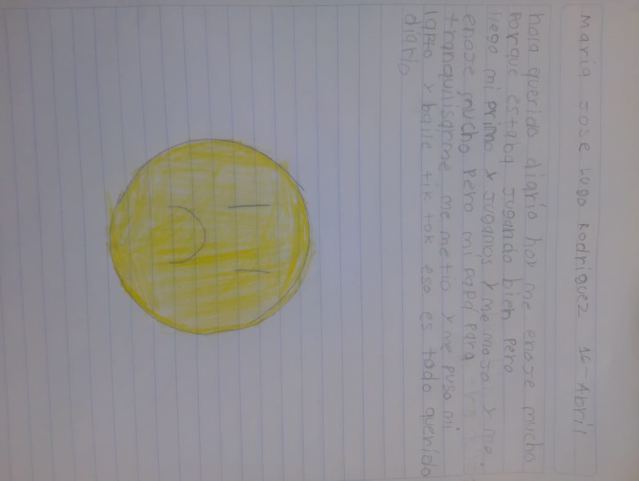 Maria Jose Lugo Rodriguez 16-Abril
hola querido diario hoy me enoje mucho
porque estaba jugando bien pero
llego mi primo y jugamos y me mojo y me
enoje mucho pero mi papá para
tranquilisarme me metio y me puso mi
lapto y baile tik tok eso es todo querido
diario